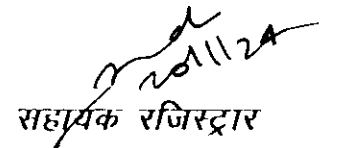 20/11/24
सहायक रजिस्ट्रार